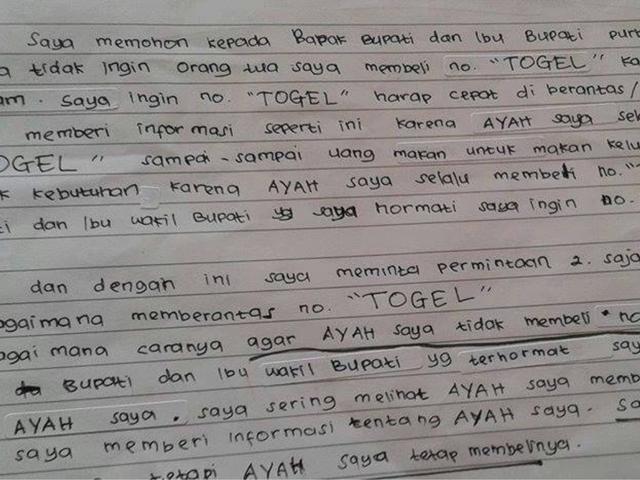 Saya memohon kepada Bapak Bupati dan Ibu Bupati pur
a tidak ingin orang tua saya membeli no. "TOGEL" ka
am. saya ingin no. "TOGEL" harap cepat di berantas/
memberi informasi seperti ini karena AYAH saya sel
OGEL" sampai-sampai uang makan untuk makan kelu
k kebutuhan karena AYAH saya selalu membeli no."
ti dan Ibu wakil Bupati yg saya hormati saya ingin no.
dan dengan ini saya meminta permintaan 2. saja
agaimana memberantas no. "TOGEL"
agai mana caranya agar AYAH saya tidak membeli no
Bupati dan Ibu wakil Bupati yg terhormat say
AYAH saya. saya sering melihat AYAH saya memb
saya memberi informasi tentang AYAH saya. sa
tetapi AYAH saya tetap membelinya.